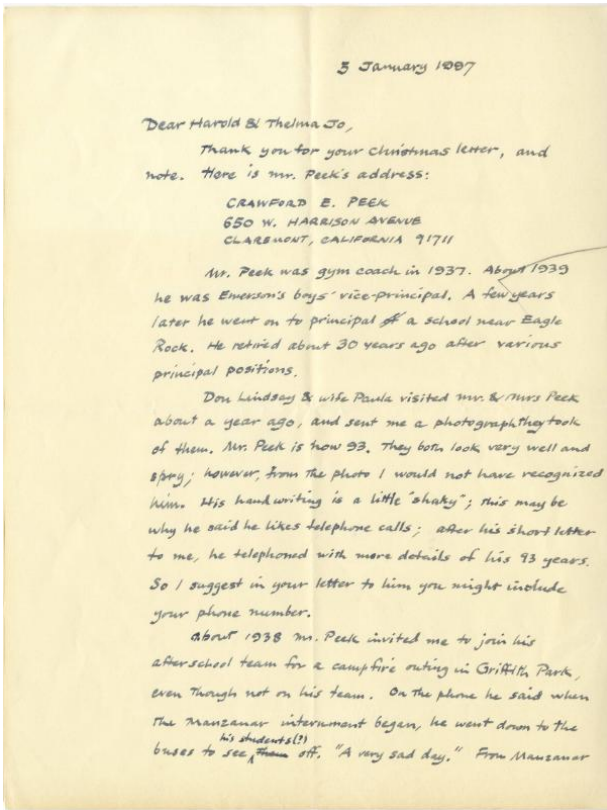 3 January 1997
Dear Harold & Thelma Jo,
Thank you for your Christmas letter, and
note. Here is Mr. Peek's address:
CRAWFORD E. PEEK
650 W. HARRISON AVENUE
CLAREMONT, CALIFORNIA 91711
Mr. Peek was gym coach in 1937. About 1939
he was Emerson's boys' vice-principal. A few years
later he went on to principal of a school near Eagle
Rock. He retired about 30 years ago after various
principal positions.
Don Lindsay & wife Paula visited Mr. & Mrs Peek
about a year ago, and sent me a photograph they took
of them. Mr. Peek is now 93. They both look very well and
spry; however, from the photo I would not have recognized
him. His handwriting is a little "shaky"; this may be
why he said he likes telephone calls; after his short letter
to me, he telephoned with more details of his 93 years.
So I suggest in your letter to him you might include
your phone number.
About 1938 Mr. Peek invited me to join his
afterschool team for a campfire outing in Griffith Park,
even though not on his team. On the phone he said when
the Manzanar internment began, he went down to the
his students(?)
buses to see them off. "A very sad day." From Manzanar